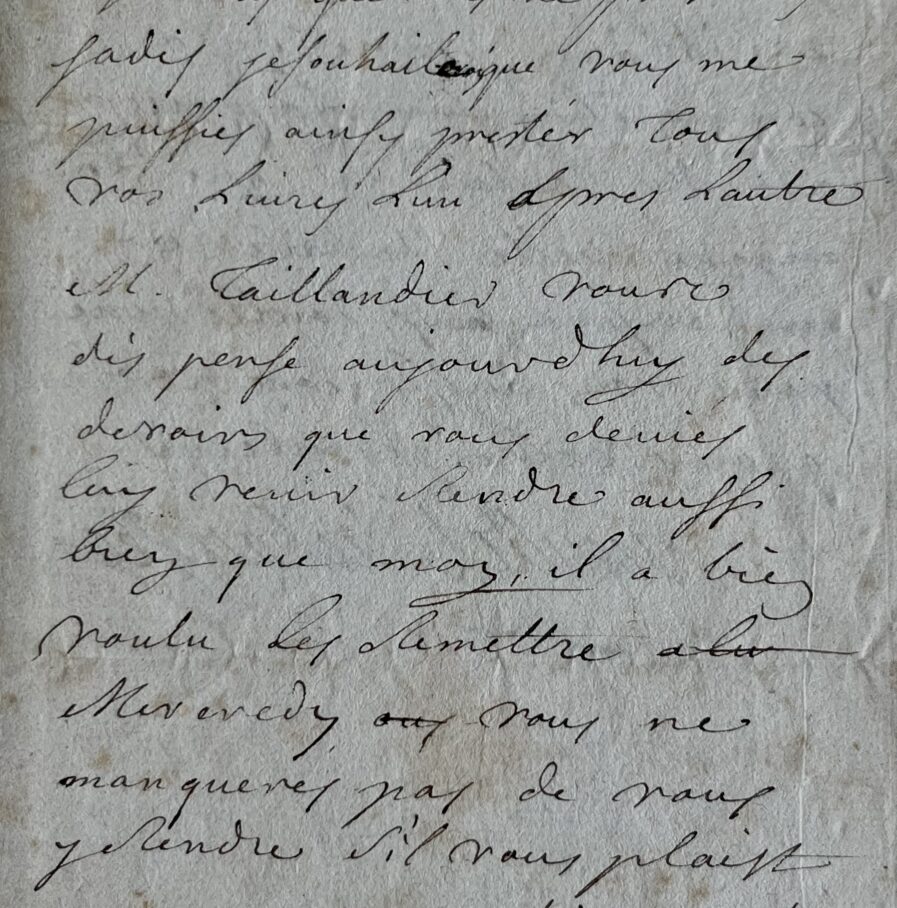 jadis je souhait que vous me
puissies ainsy prester Tous
vos Livres Lun apres Lautre
M. Taillandier vous
dis pense aujourdhuy des
devoirs que vous deviés
luy venir Rendre aussi
bien que moy, il a bien
voulu les Remettre a lu
Mercredy vous ne
manqueres pas de vous
y Rendre S'il vous plaist